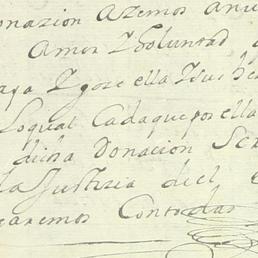 onazion azemos a nue
Amor I Boluntad
aya I goze ella I sus he
Loqual Cada que por ella
dicha Donacion Se
la Justicia de el
earemos Con todas